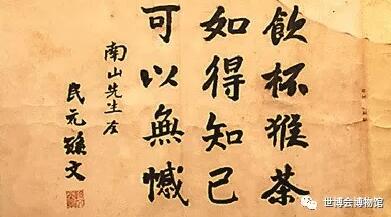 飲杯猴茶
如得知己
可以無憾
南山先生
民元孫文
世博会博物馆